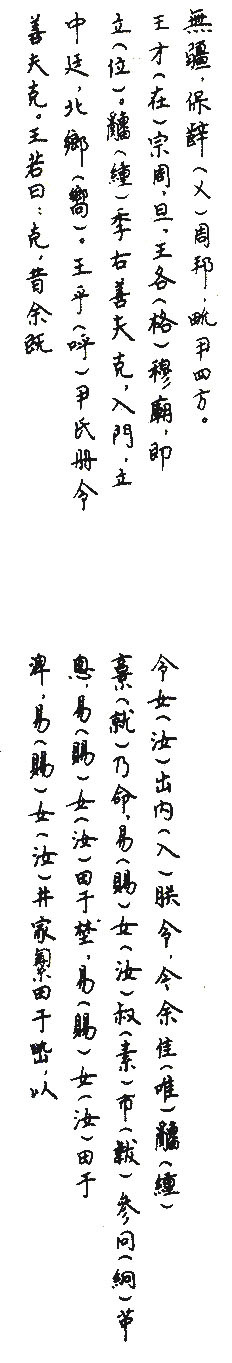 無疆,保辥(乂)周邦,㽙尹四方。
王才(在)宗周,旦,王各(格)穆廟,即
立(位)。(緟)季右善夫克,入門,立
中廷,北鄉(嚮)。王乎(呼)尹氏冊令
善夫克。王若曰:克,昔余既
令女(汝)出內(入)朕令,今余隹(唯)(緟)
(就)乃命,易(賜)女(汝)叔(素)巿(韍)參冋(絅)苇
悤,易(賜)女(汝)田于埜,易(賜)女(汝)田于
渒,易(賜)女(汝)井家田于,以